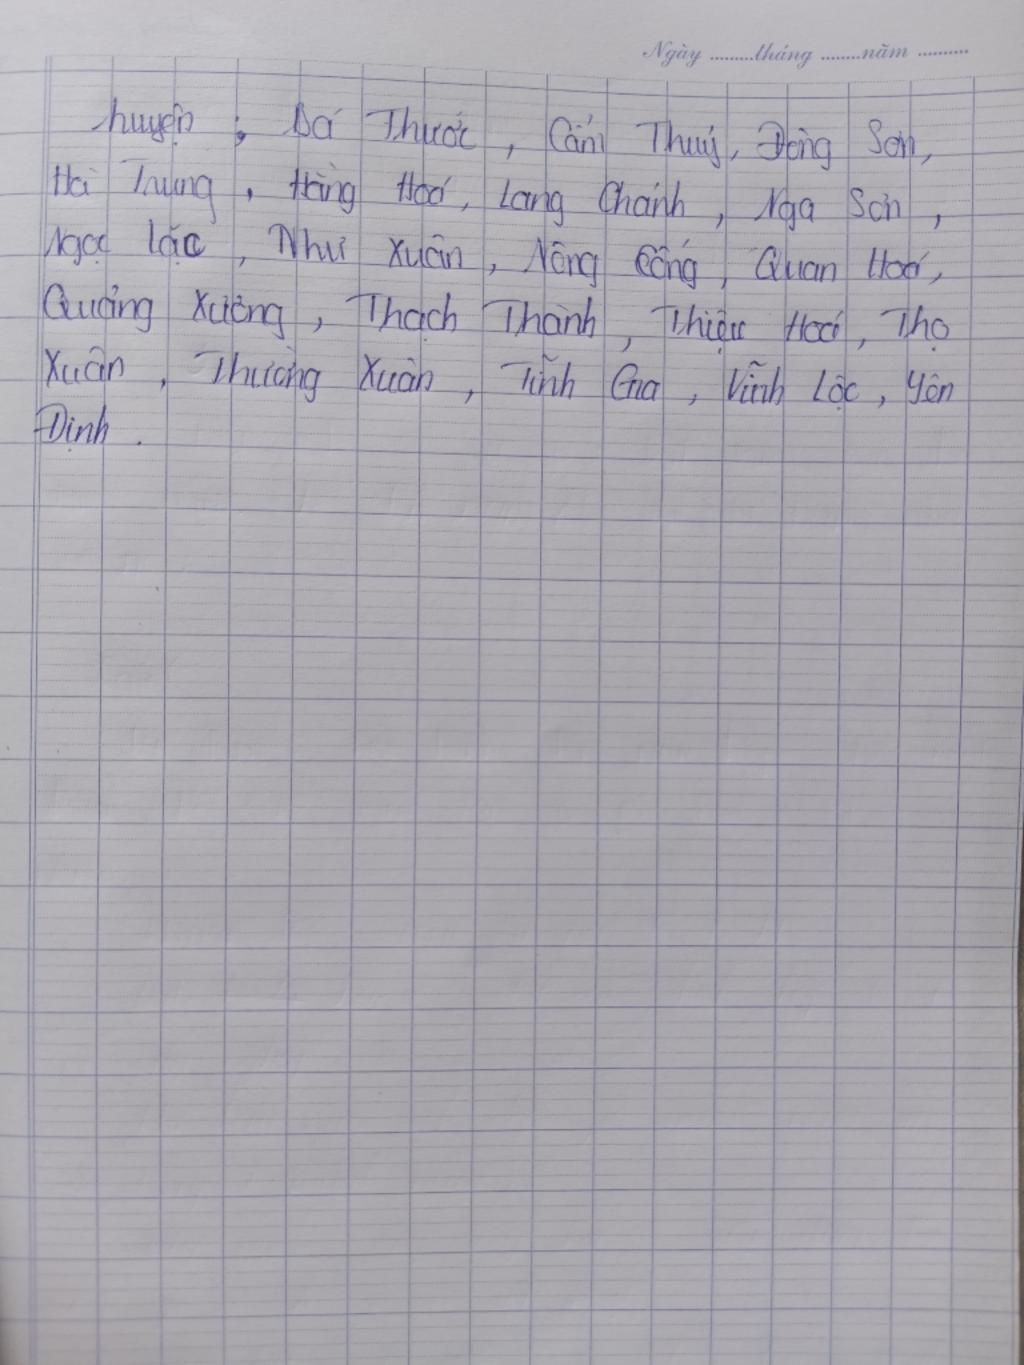 Ngày .........tháng ........năm ..........
huyện ; Bá Thước , Cẩm Thuỷ, Đông Sơn,
Hà Trung , Hoằng Hoá, Lang Chánh , Nga Sơn ,
Ngọc Lặc , Như Xuân , Nông Cống , Quan Hoá,
Quảng Xương , Thạch Thành , Thiệu Hoá, Thọ
Xuân , Thường Xuân , Tĩnh Gia , Vĩnh Lộc , Yên
Định .